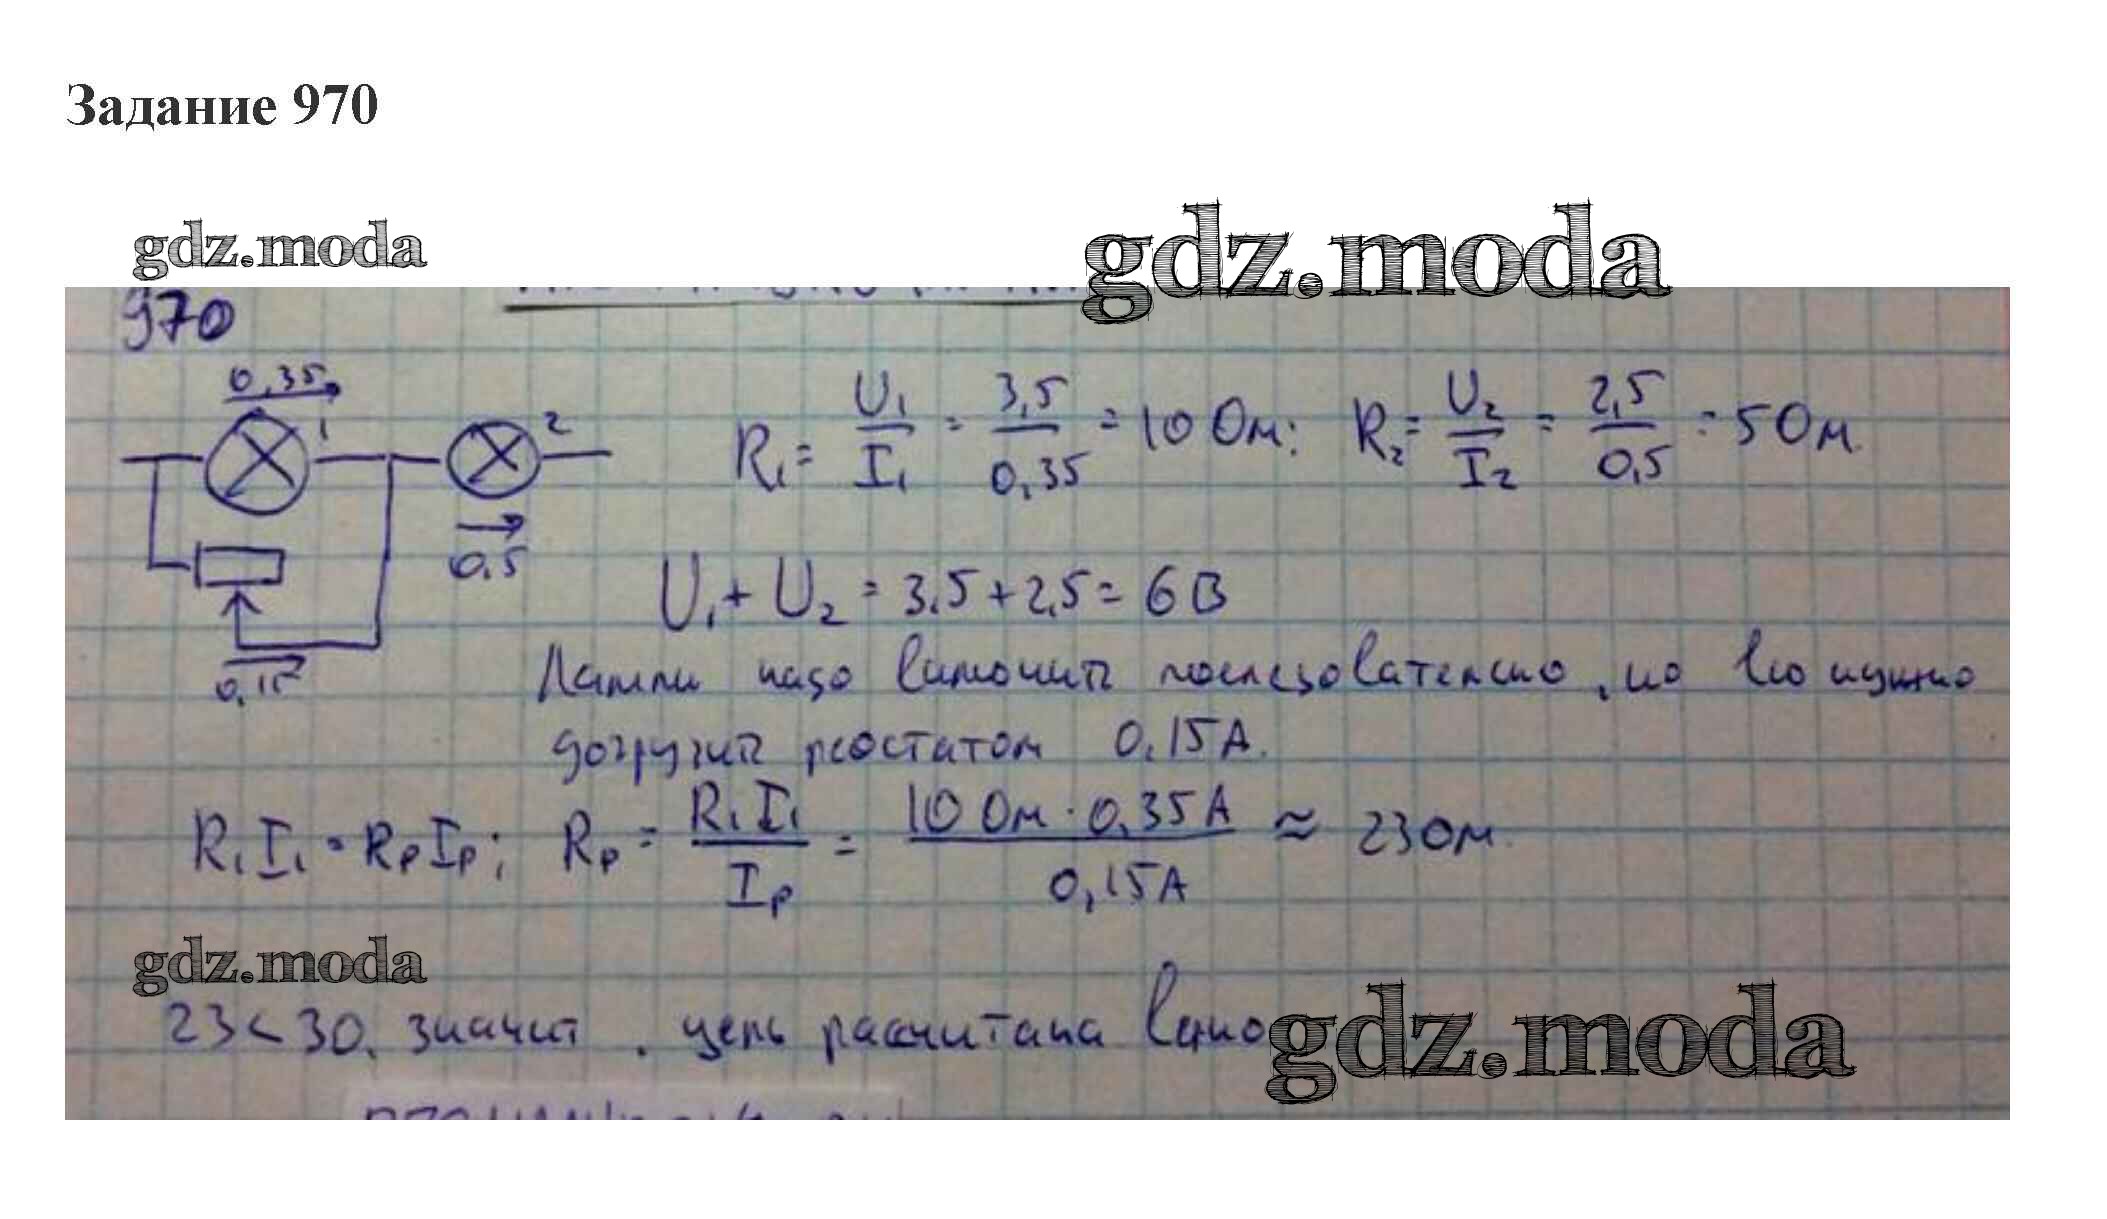 Задание 970
gdz.moda
gdz.moda
970
0,35
1
2
0,5
0,15
R₁ = U₁/I₁ = 3,5/0,35 = 10 Ом; R₂ = U₂/I₂ = 2,5/0,5 = 5 Ом.
U₁ + U₂ = 3,5 + 2,5 = 6 В
Лампы надо включить последовательно, но нужно
догрузить реостатом 0,15 А.
R₁I₁ = RрIр; Rр = R₁I₁/Iр = 10 Ом · 0,35 А/0,15 А ≈ 23 Ом.
gdz.moda
23 < 30, значит, цепь расчитана
gdz.moda